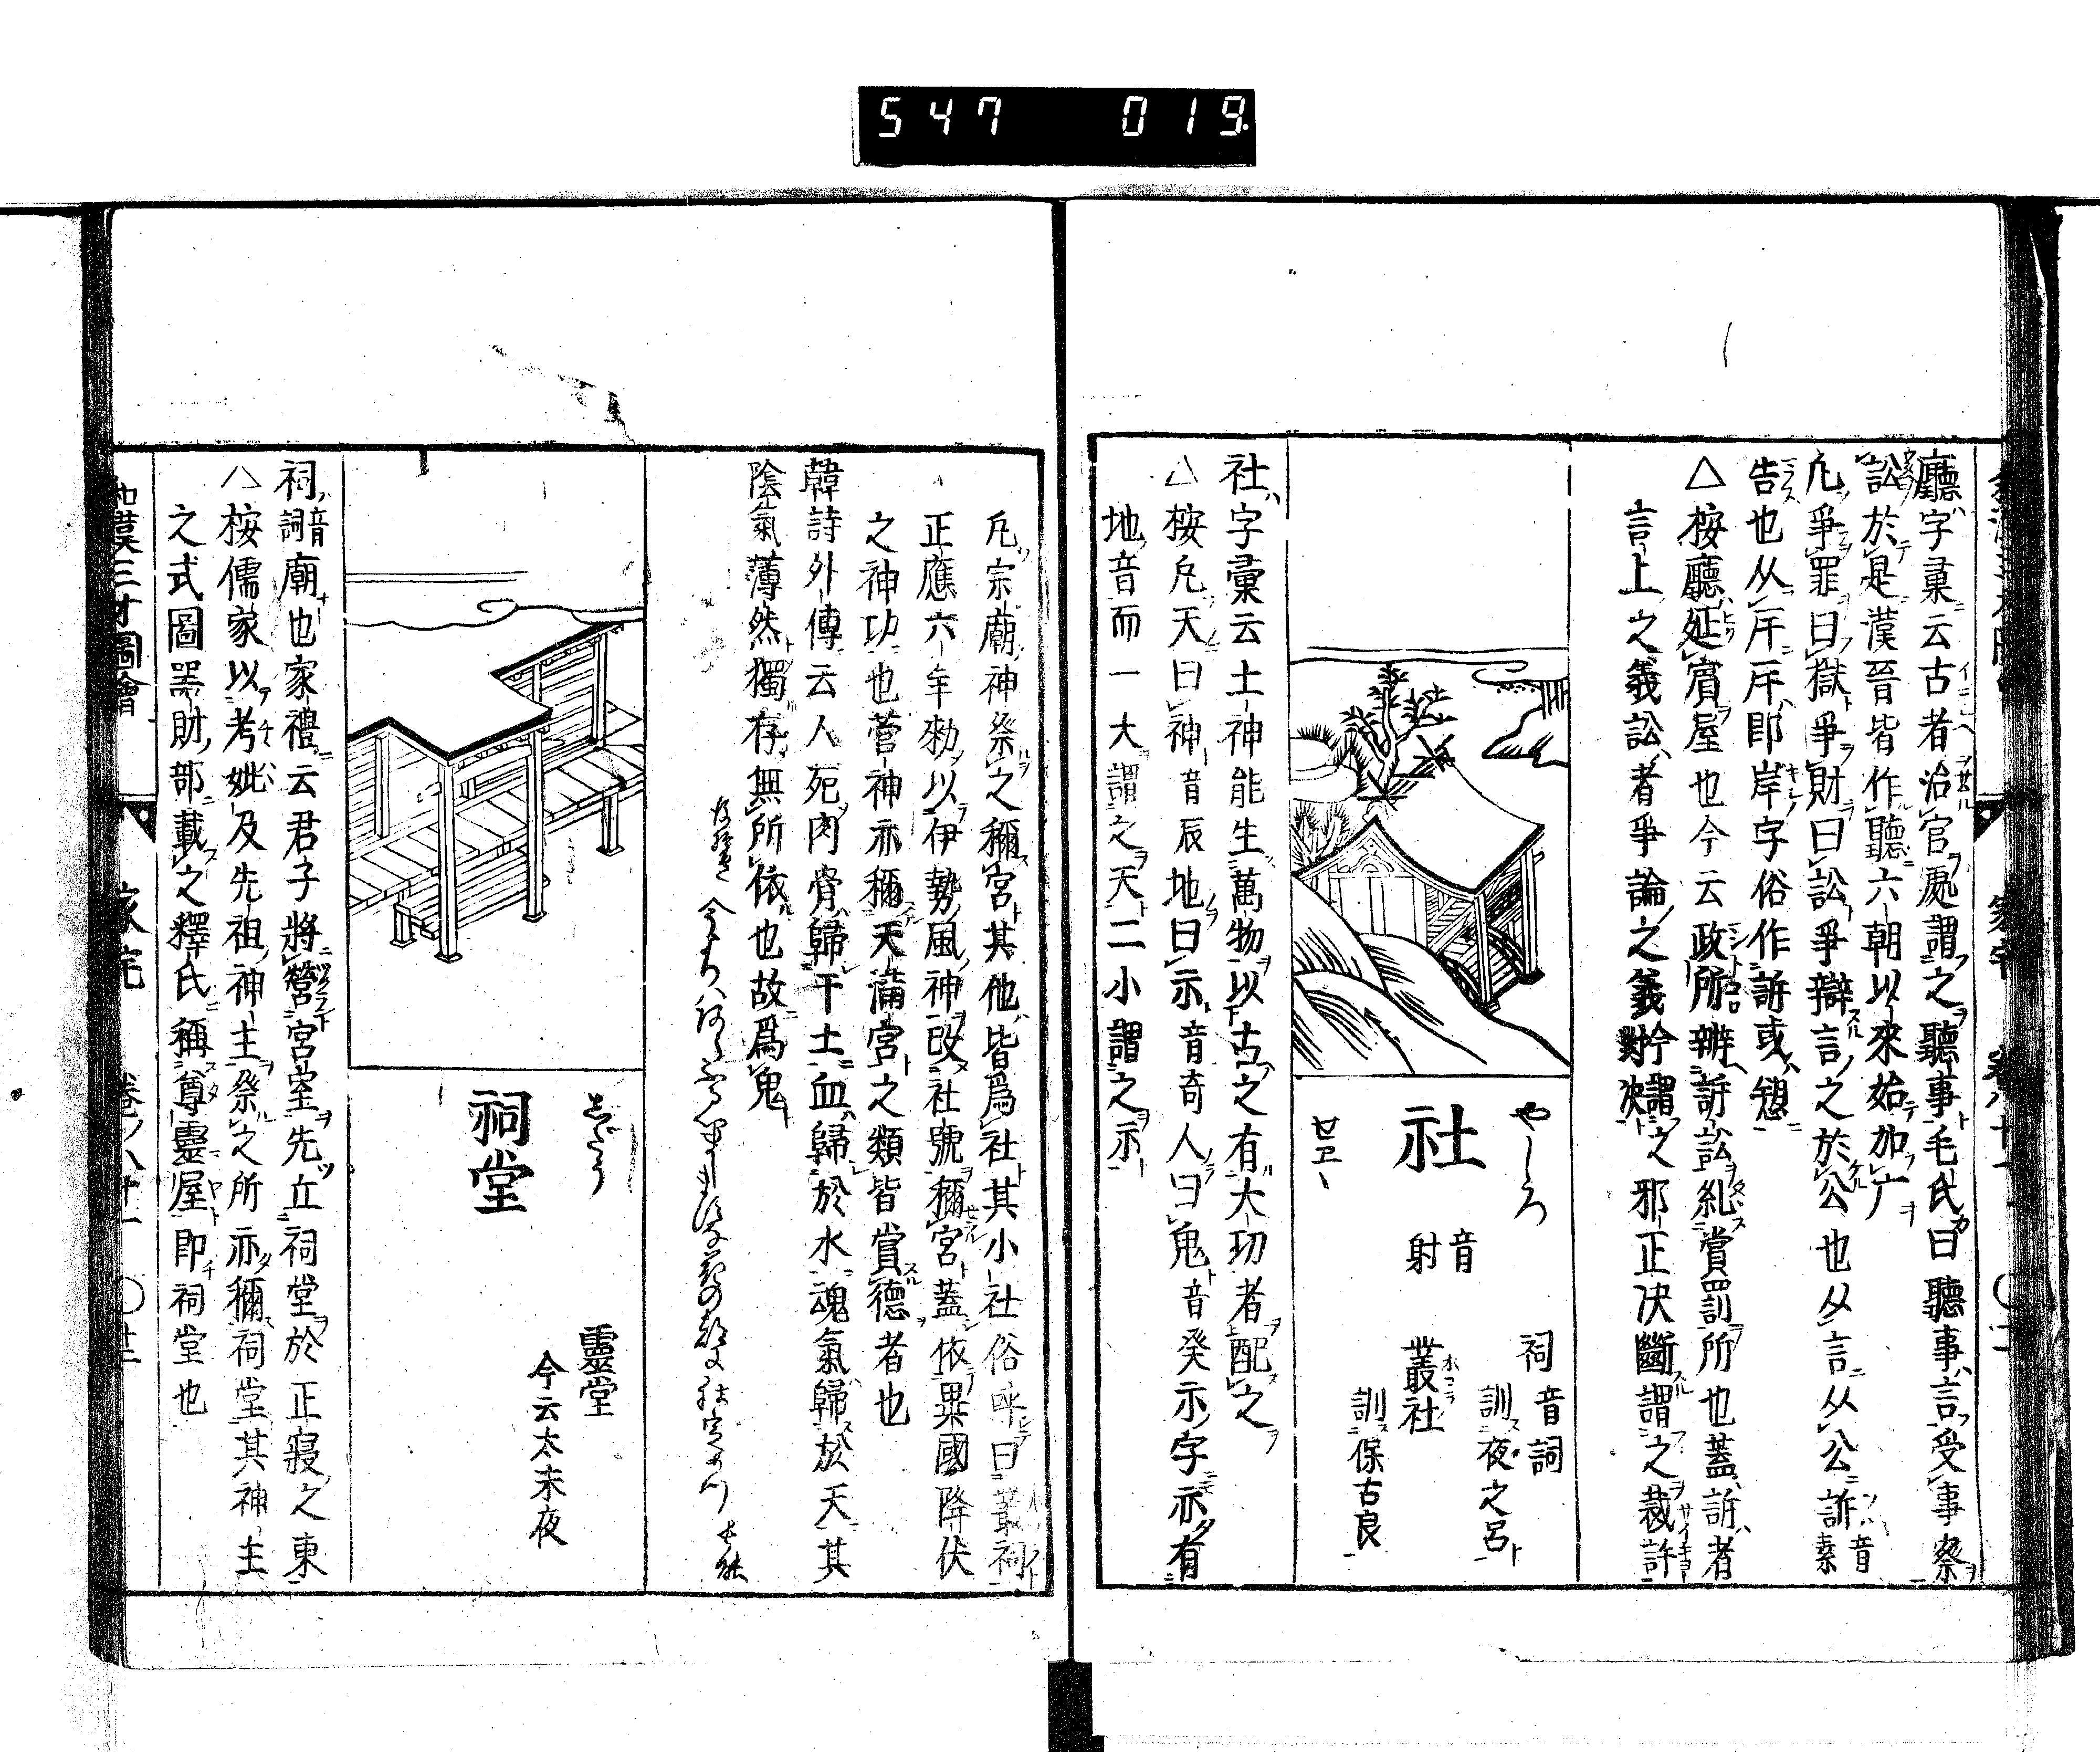 547 019
廳字彙云古者治官處謂之聽事毛氏曰聽事言受事察
訟於是漢晉皆作聽六朝以來始加广
凢爭罪曰獄爭財曰訟爭辯言之於公也从言从公訴音素
告也从㡿㡿即岸字俗作訴或愬
△按廳延賓屋也今云政所辨訴訟糺賞罰所也蓋訴者
言上之義訟者爭論之義今謂對决之邪正决斷謂之裁許
やしろ
社
音射
祠音詞
訓夜之呂
叢社
ホコラ
訓保古良
社字彙云土神能生萬物以古之有大功者配之
△按凡天曰神音辰地曰示音奇人曰鬼音癸示字示有
地音而一大謂之天二小謂之示
凡宗廟神祭之稱宮其他皆爲社其小社俗呼曰叢祠
正應六年勑以伊勢風神改社號稱宮蓋依異國降伏
之神功也菅神亦稱天滿宮之類皆賞德者也
韓詩外傳云人死肉骨歸于土血歸於水魂氣歸於天其
陰氣薄然獨存無所依也故爲鬼
祠堂
靈堂
今云太末夜
祠音詞廟也家禮云君子將營宮室先立祠堂於正寢之東
△按儒家以考妣及先祖神主祭之所亦稱祠堂其神主
之式圖噐財部載之釋氏稱尊靈屋即祠堂也
和漢三才圖會 家宅 卷ノ八十一